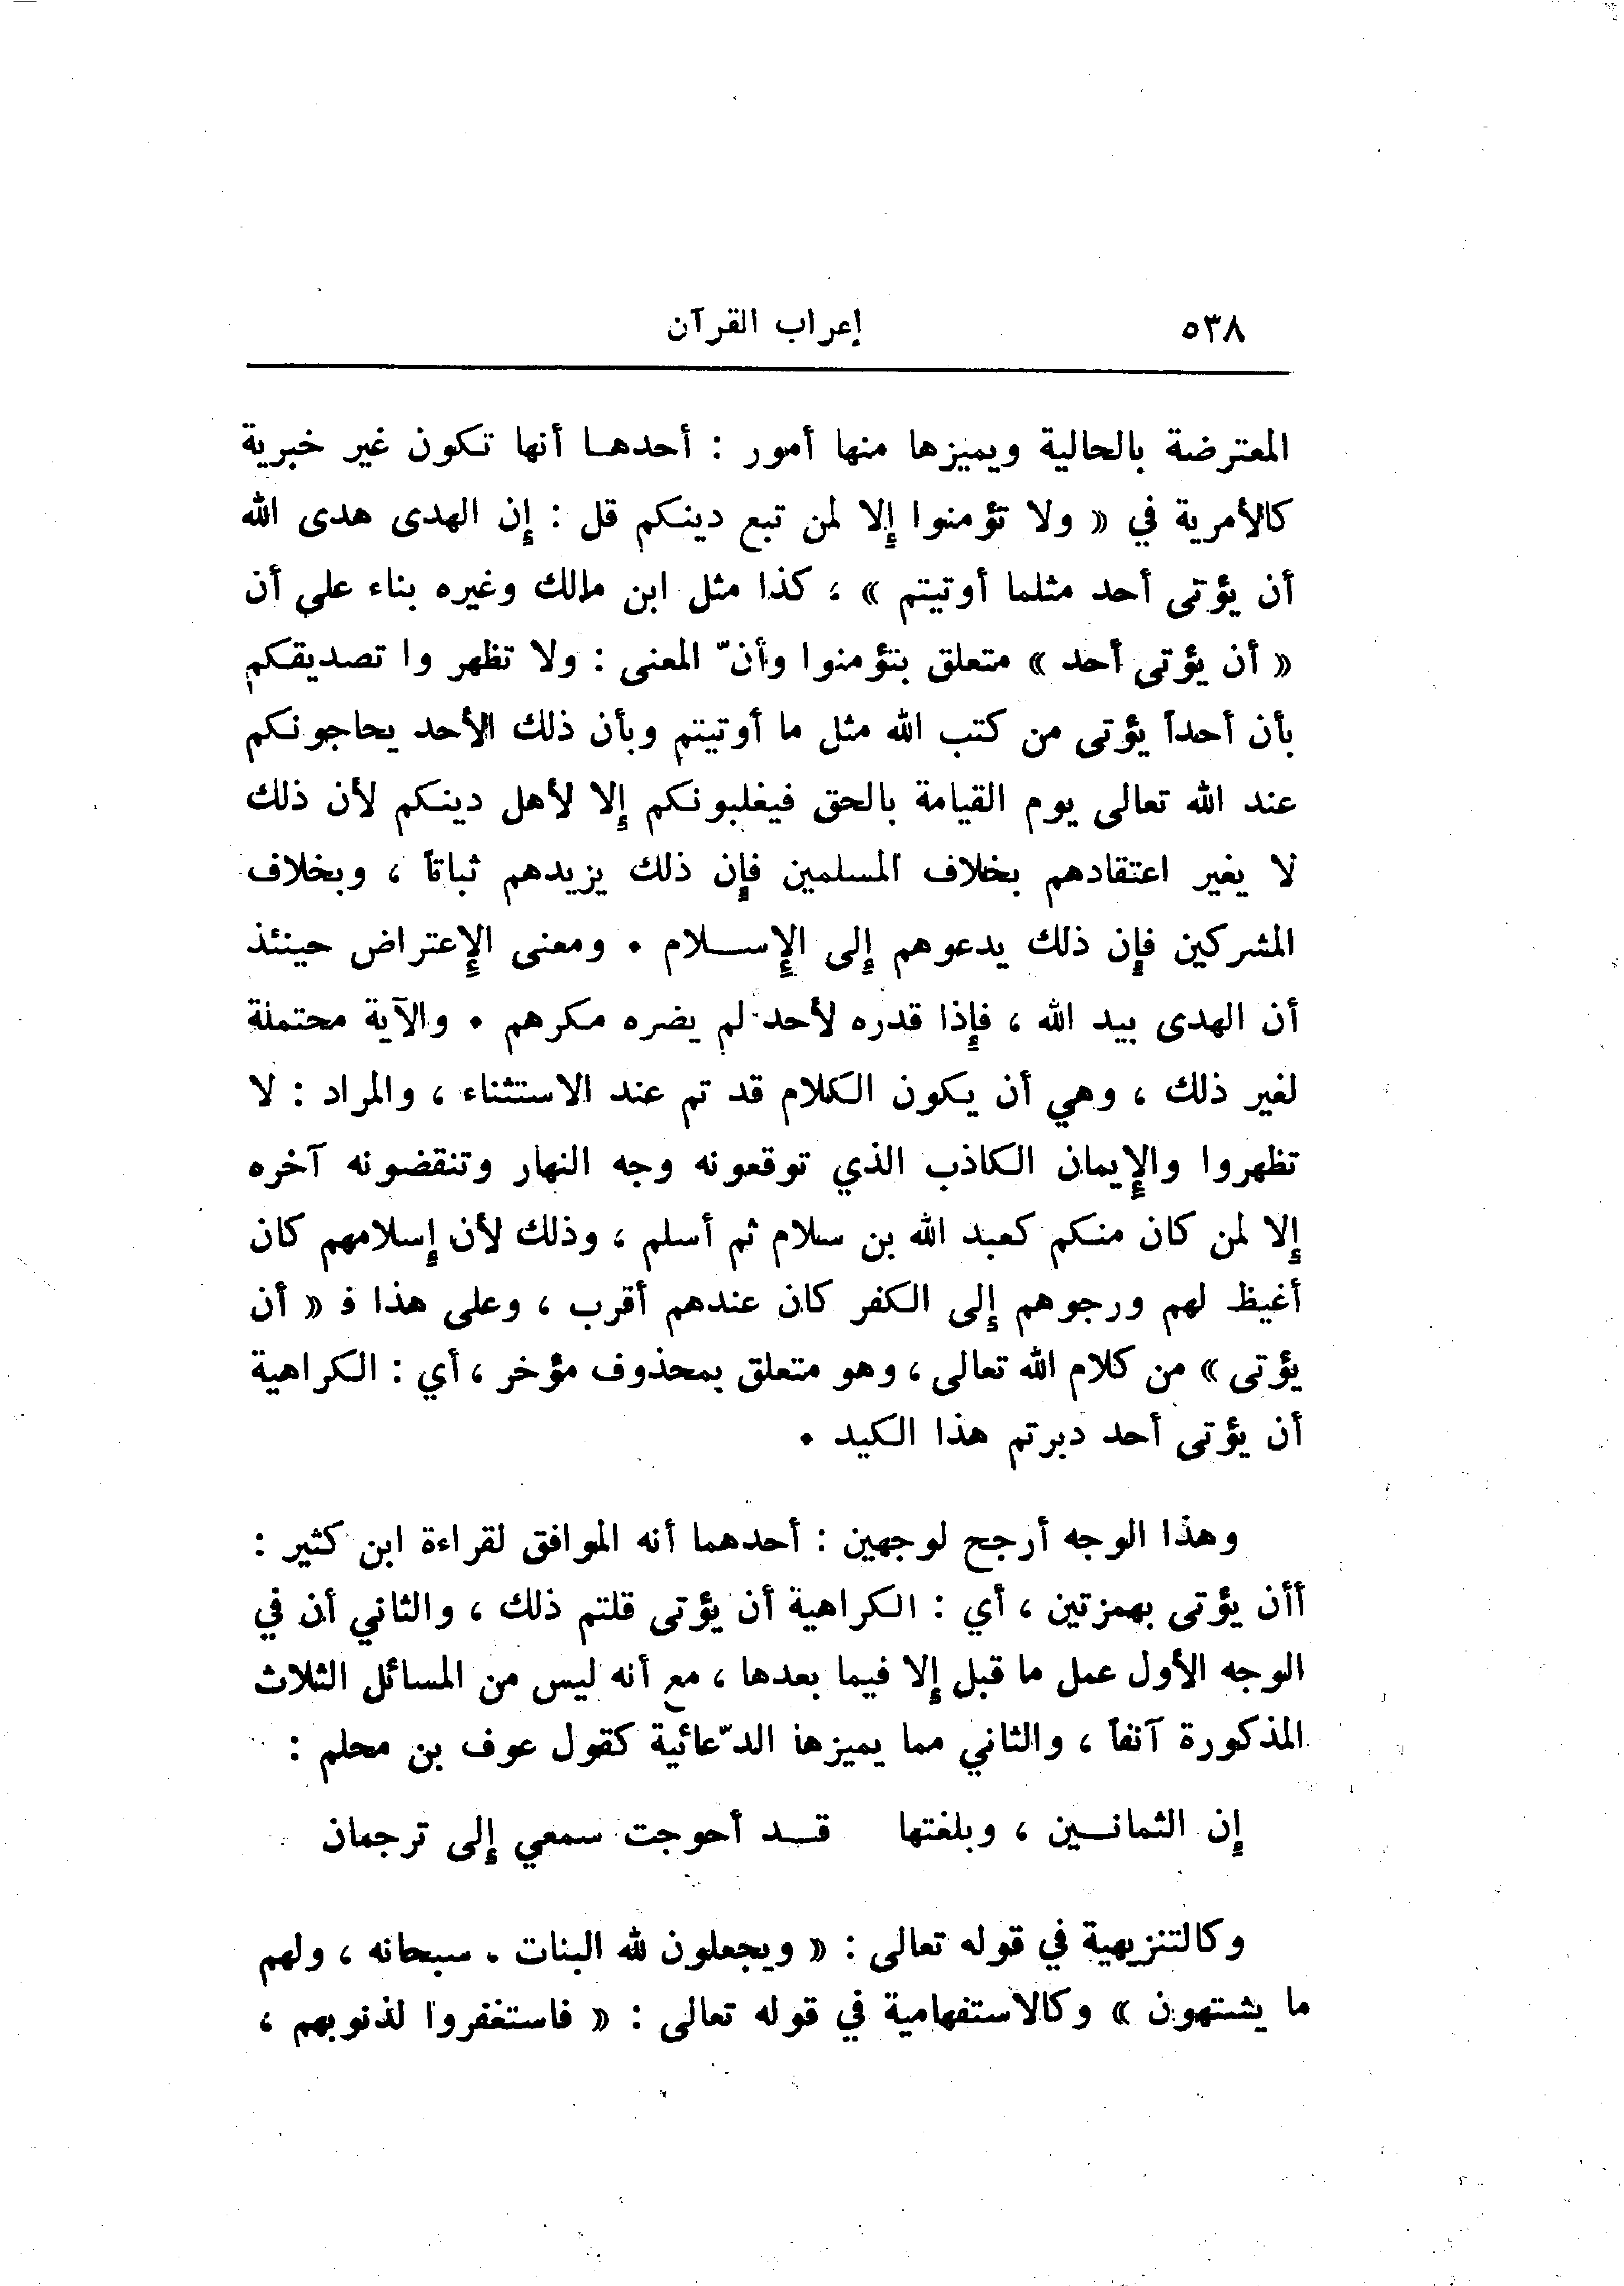 ٥٣٨ إعراب القرآن
المعترضة بالحالية ويميزها منها أمور : أحدهـا أنها تكون غير خبرية
كالأمرية في « ولا تؤمنوا إلا لمن تبع دينكم قل : إن الهدى هدى الله
أن يؤتى أحد مثلما أوتيتم » ؛ كذا مثل ابن مالك وغيره بناء على أن
« أن يؤتى أحد » متعلق بتؤمنوا وأنّ المعنى : ولا تظهر وا تصديقكم
بأن أحداً يؤتى من كتب الله مثل ما أوتيتم وبأن ذلك الأحد يحاجونكم
عند الله تعالى يوم القيامة بالحق فيغلبونكم إلا لأهل دينكم لأن ذلك
لا يغير اعتقادهم بخلاف المسلمين فإن ذلك يزيدهم ثباتاً ، وبخلاف
المشركين فإن ذلك يدعوهم إلى الإســلام . ومعنى الإعتراض حينئذ
أن الهدى بيد الله ، فإذا قدره لأحد لم يضره مكرهم . والآية محتملة
لغير ذلك ، وهي أن يكون الكلام قد تم عند الاستثناء ، والمراد : لا
تظهروا والإيمان الكاذب الذي توقعونه وجه النهار وتنقضونه آخره
إلا لمن كان منكم كعبد الله بن سلام ثم أسلم ، وذلك لأن إسلامهم كان
أغيظ لهم ورجوهم إلى الكفر كان عندهم أقرب ، وعلى هذا ف « أن
يؤتى » من كلام الله تعالى ، وهو متعلق بمحذوف مؤخر ، أي : الكراهية
أن يؤتى أحد دبرتم هذا الكيد .
وهذا الوجه أرجح لوجهين : أحدهما أنه الموافق لقراءة ابن كثير :
أأن يؤتى بهمزتين ، أي : الكراهية أن يؤتى قلتم ذلك ، والثاني أن في
الوجه الأول عمل ما قبل إلا فيما بعدها ، مع أنه ليس من المسائل الثلاث
المذكورة آنفاً ، والثاني مما يميزها الدّعائية كقول عوف بن محلم :
إن الثمانــين ، وبلغتها قــد أحوجت سمعي إلى ترجمان
وكالتنزيهية في قوله تعالى : « ويجعلون لله البنات . سبحانه ، ولهم
ما يشتهون » وكالاستفهامية في قوله تعالى : « فاستغفروا لذنوبهم ،